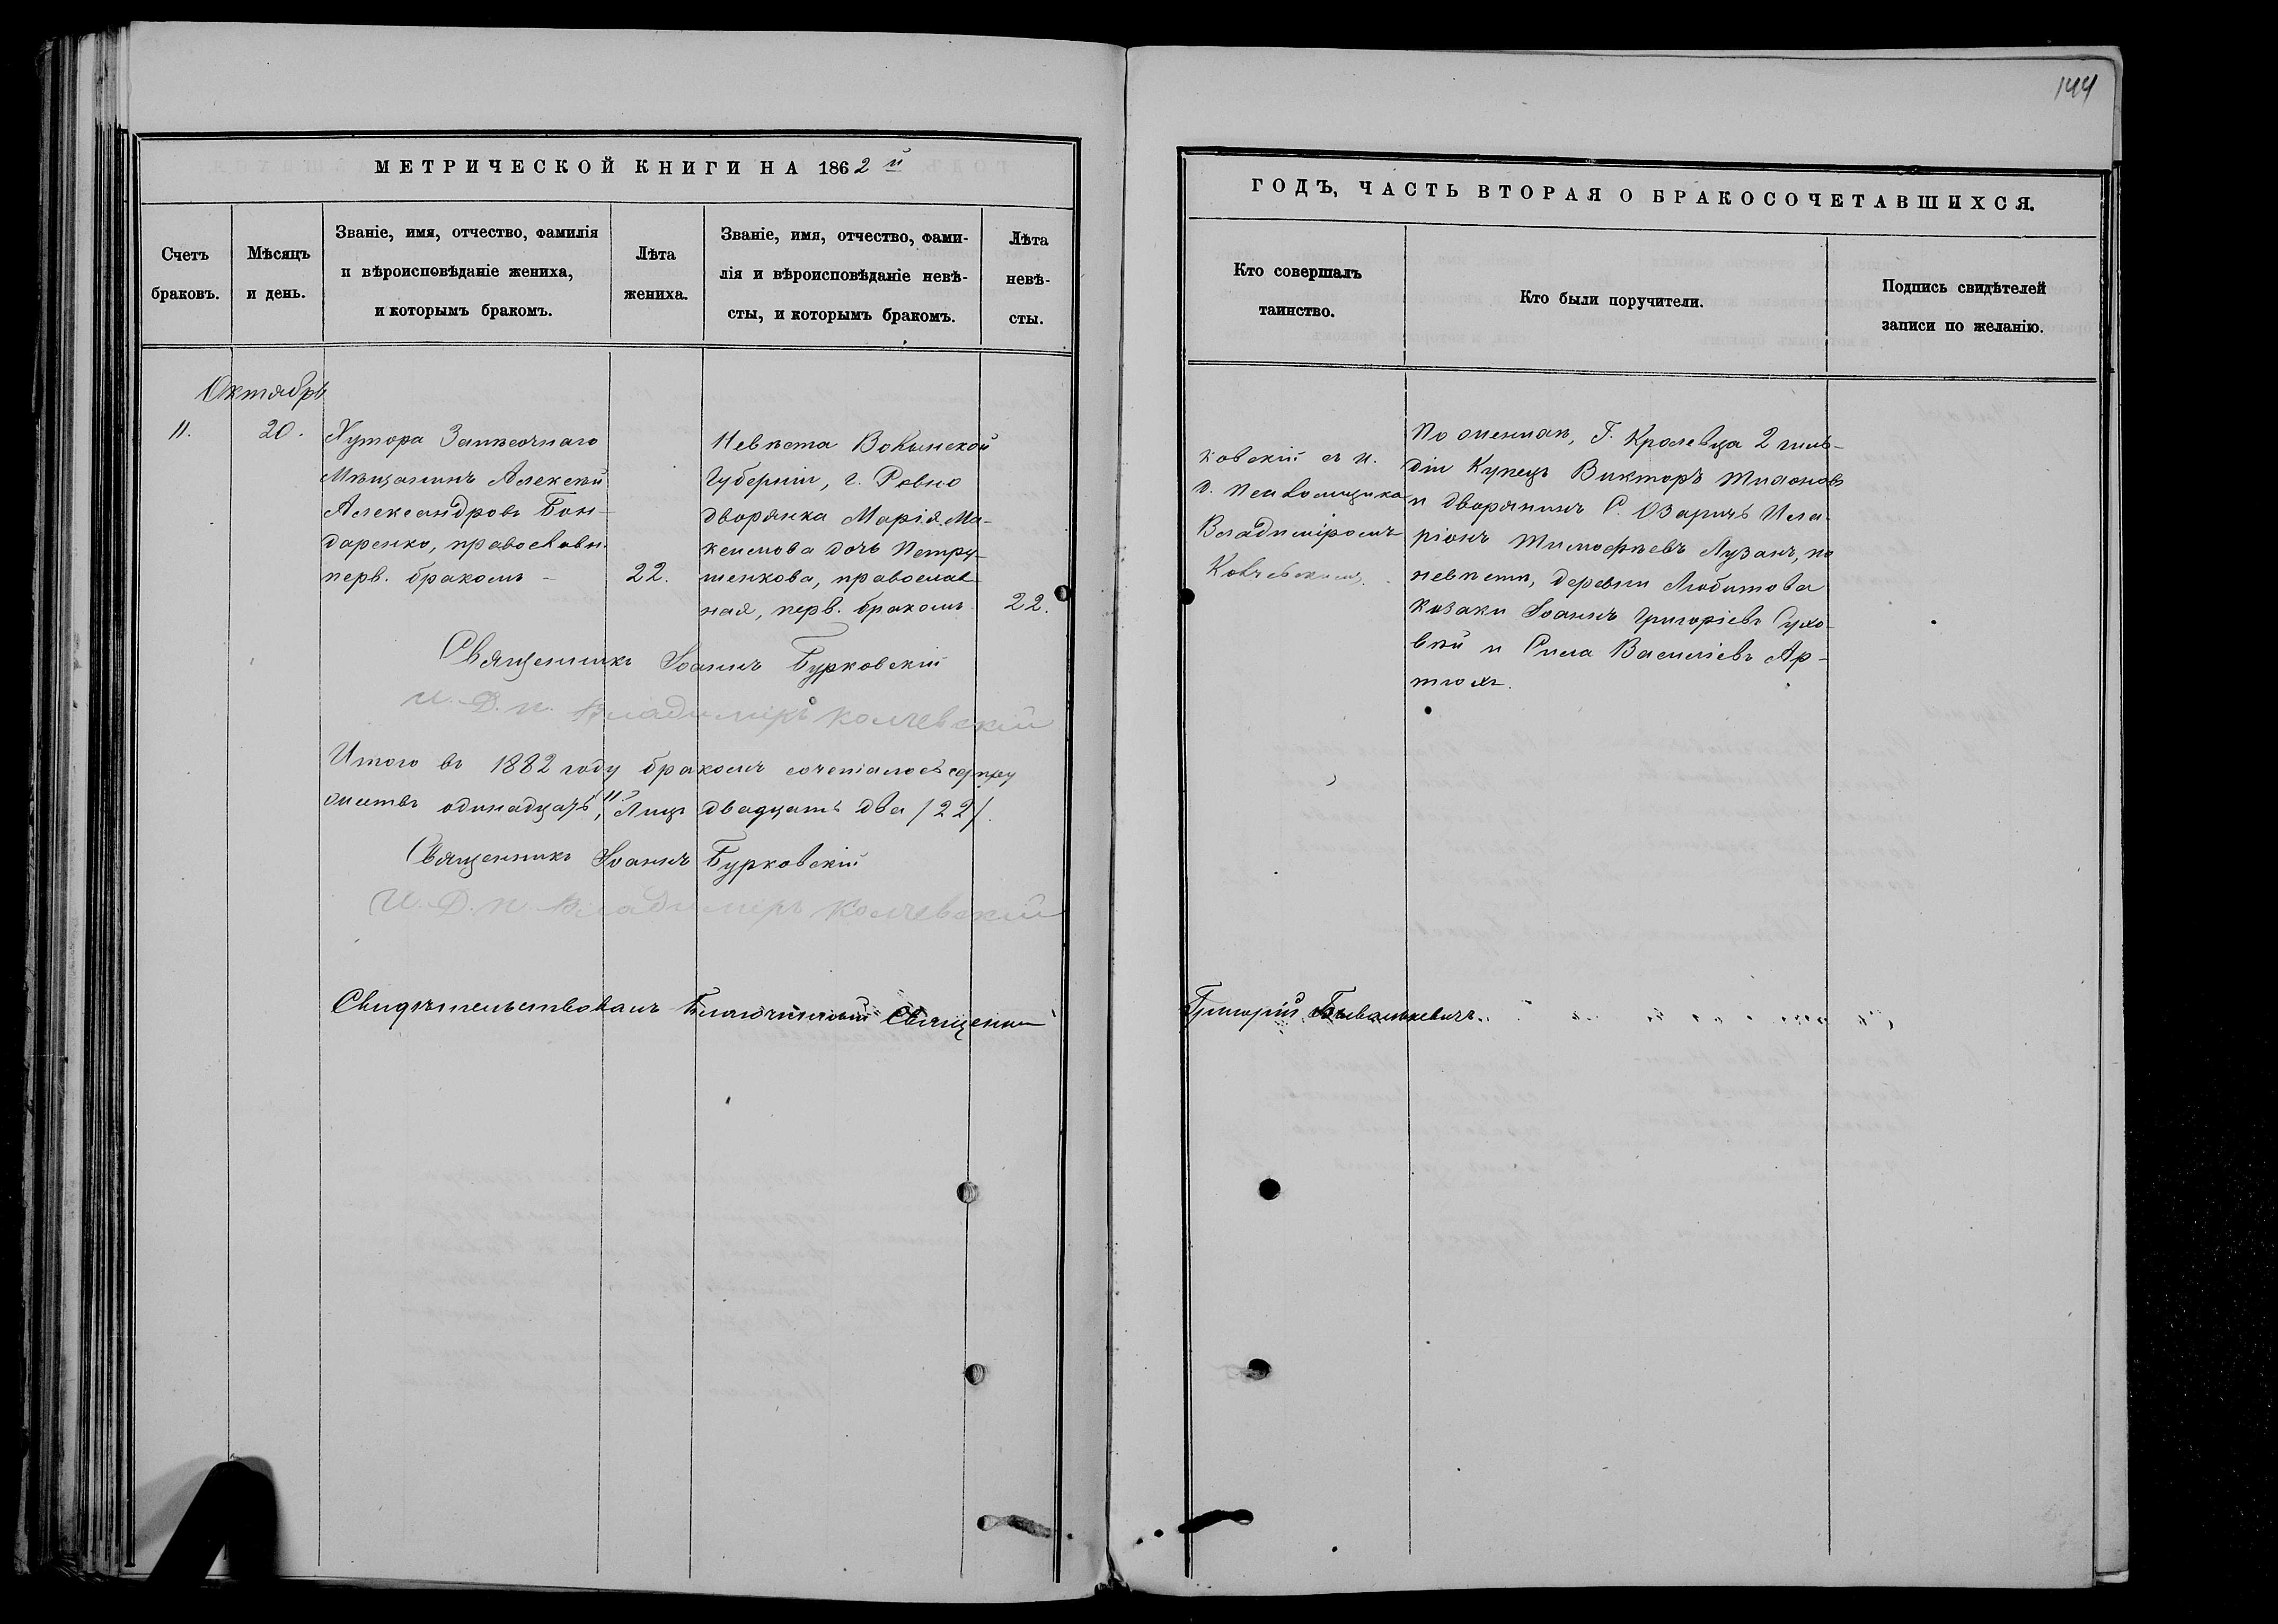 144
МЕТРИЧЕСКОЙ КНИГИ НА 1862 й
ГОДЪ, ЧАСТЬ ВТОРАЯ О БРАКОСОЧЕТАВШИХСЯ.
Счетъ
браковъ.
Мѣсяцъ
и день.
Званіе, имя, отчество, фамилія
и вѣроисповѣданіе жениха,
и которымъ бракомъ.
Лѣта
жениха.
Званіе, имя, отчество, фами-
лія и вѣроисповѣданіе невѣ-
сты, и которымъ бракомъ.
Лѣта
невѣ-
сты.
Кто совершалъ
таинство.
Кто были поручители.
Подпись свидѣтелей
записи по желанію.
Октябрь
11.
20.
Хутора
Мѣщанинъ Алексѣй
Александровъ Бон-
даренко, православн.
перв. бракомъ -
22.
Невѣста Волынской
Губерніи, г. Ровно
дворянка Марія Ма-
ксимова дочь Петру-
шенкова, православ-
ная, перв. бракомъ.
22.
ковскій съ и.
д. Псаломщика
Владиміромъ
По женихѣ, Г. Кролевца 2 гиль-
діи Купецъ Викторъ
и дворянинъ С. Озаричъ Ила-
ріонъ Тимофѣевъ Лузанъ, по
невѣстѣ, деревни Любитова
козаки Іоаннъ Григоріевъ Сухо-
вѣй и Сила Василіевъ Ар-
тюхъ.
Священникъ Іоаннъ Бурковскій
И. Д. п. Владиміръ Колчевскій
Итого въ 1882 году бракомъ сочеталось супру
жествъ одинадцать, "11" Лицъ двадцать два /22/.
Священникъ Іоаннъ Бурковскій
И. Д. п. Владиміръ Колчевскій
Свидѣтельствовалъ Благочинный Священникъ
Григорій